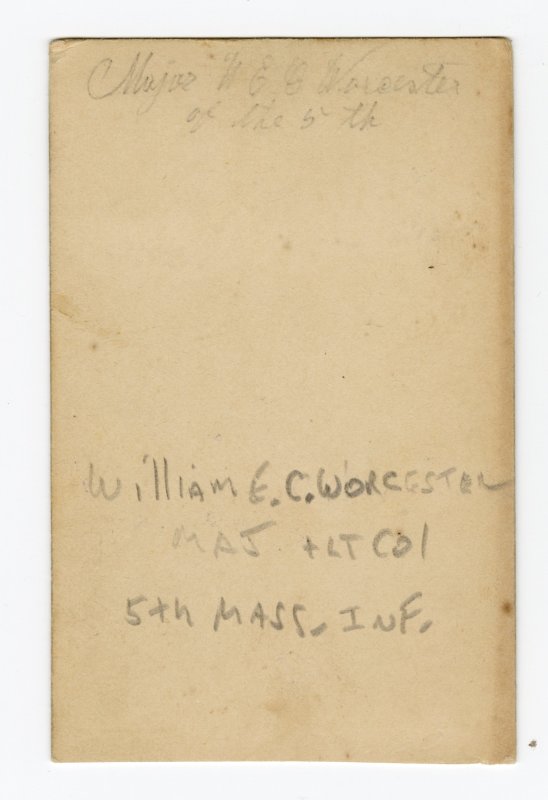 Major W E C Worcester
of the 5 th
William E. C. Worcester
MAJ + LT COl
5th MASS. INF.